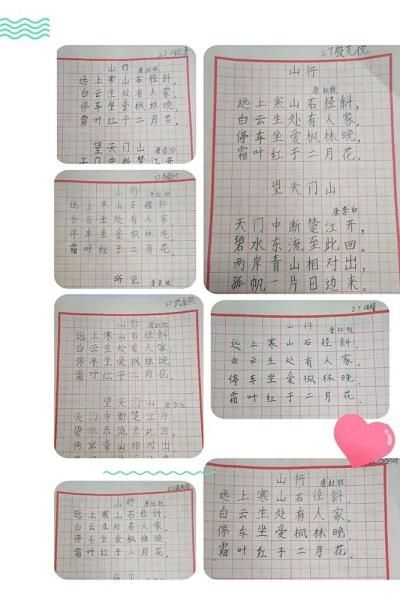 山行
唐杜牧
远上寒山石径斜,
白云生处有人家。
停车坐爱枫林晚,
霜叶红于二月花。
望天门山
天门中断楚江开
山行
唐杜牧
远上寒山石径斜,
白云生处有人家。
停车坐爱枫林晚,
霜叶红于二月花。
望天门山
唐李白
天门中断楚江开,
碧水东流至此回。
两岸青山相对出,
孤帆一片日边来。
山行
唐杜牧
远上寒山石径斜,
白云生处有人家。
停车坐爱枫林晚,
霜叶红于二月花。
所见
山行
唐杜牧
远上寒山石径斜,
白云生处有人家。
停车坐爱枫林晚,
霜叶红于二月花。
望天门山
唐李白
天门中断楚江开,
碧水东流至此回。
两岸青山相对出
山行
唐杜牧
远上寒山石径斜,
白云生处有人家。
停车坐爱枫林晚,
霜叶红于二月花。
山行
唐杜牧
远上寒山石径斜,
白云生处有人家。
停车坐爱枫林晚,
霜叶红于二月花。
山行
唐杜牧
远上寒山石径斜,
白云生处有人家。
停车坐爱枫林晚,
霜叶红于二月花。